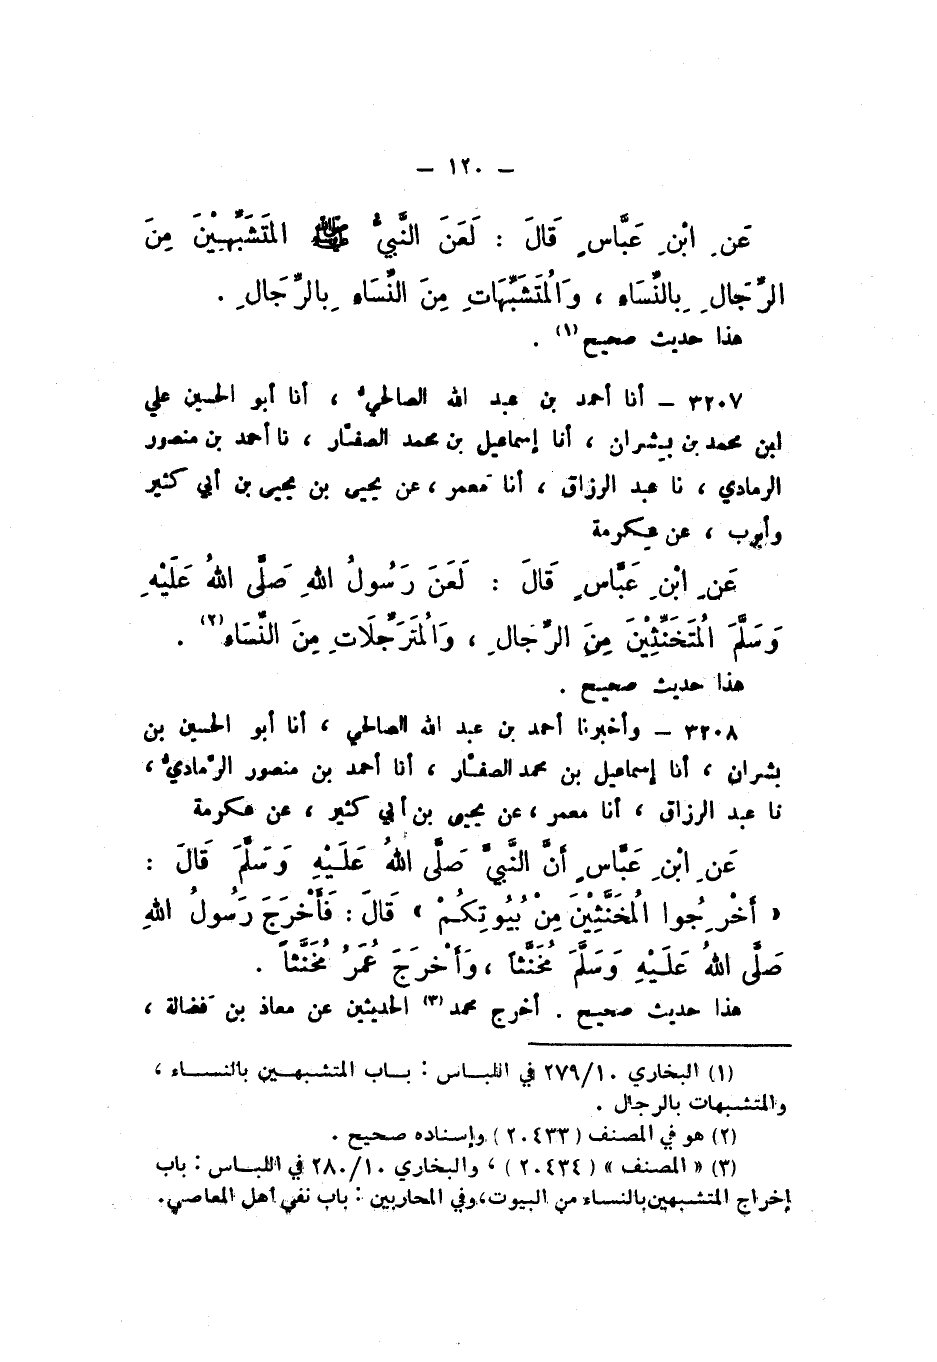 — ١٢٠ —
عَنِ ابْنِ عَبَّاسٍ قَالَ : لَعَنَ النَّبِيُّ ﷺ المُتَشَبِّهِيْنَ مِنَ
الرِّجَالِ بِالنِّسَاءِ ، وَالْمُتَشَبِّهَاتِ مِنَ النِّسَاءِ بِالرِّجَالِ .
هذا حديث صحيح (١) .
٣٢٠٧ — أنا أحمد بن عبد الله الصالحيُّ ، أنا أبو الحسين علي
ابن محمد بن بشران ، أنا إسماعيل بن محمد الصفّار ، نا أحمد بن منصور
الرمادي ، نا عبد الرزاق ، أنا مَعمر ، عن يحيى بن يحيى بن أبي كثير
وأيوب ، عن عِكرمة
عَنِ ابْنِ عَبَّاسٍ قَالَ : لَعَنَ رَسُولُ اللهِ صَلَّى اللهُ عَلَيْهِ
وَسَلَّمَ الْمُتَخَنِّثِيْنَ مِنَ الرِّجَالِ ، وَالْمُتَرَجِّلَاتِ مِنَ النِّسَاءِ (٢) .
هذا حديث صحيح .
٣٢٠٨ — وأخبرنا أحمد بن عبد الله الصالحي ، أنا أبو الحسين بن
بشران ، أنا إسماعيل بن محمد الصفّار ، أنا أحمد بن منصور الرّماديُّ ،
نا عبد الرزاق ، أنا معمر ، عن يحيى بن أبي كثير ، عن عكرمة
عَنِ ابْنِ عَبَّاسٍ أَنَّ النَّبِيَّ صَلَّى اللهُ عَلَيْهِ وَسَلَّمَ قَالَ :
« أَخْرِجُوا الْمُخَنَّثِيْنَ مِنْ بُيُوتِكُمْ » قَالَ : فَأَخْرَجَ رَسُولُ اللهِ
صَلَّى اللهُ عَلَيْهِ وَسَلَّمَ مُخَنَّثاً ، وَأَخْرَجَ عُمَرُ مُخَنَّثاً .
هذا حديث صحيح . أخرج محمد (٣) الحديثين عن معاذ بن فَضالة ،
(١) البخاري ٢٧٩/١٠ في اللباس : باب المتشبهين بالنساء ،
والمتشبهات بالرجال .
(٢) هو في المصنف ( ٢٠٤٣٣ ) وإسناده صحيح .
(٣) « المصنف » ( ٢٠٤٣٤ ) ، والبخاري ٢٨٠/١٠ في اللباس : باب
إخراج المتشبهين بالنساء من البيوت ، وفي المحاربين : باب نفي أهل المعاصي .